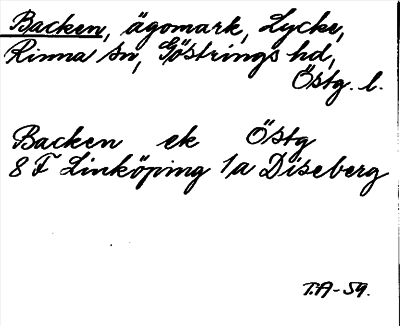 Backen, ägomark, Lycke,
Rinna sn, Göstrings hd,
Östg. l.
Backen ek Östg
8 F Linköping 1a Diseberg
T.A-59.